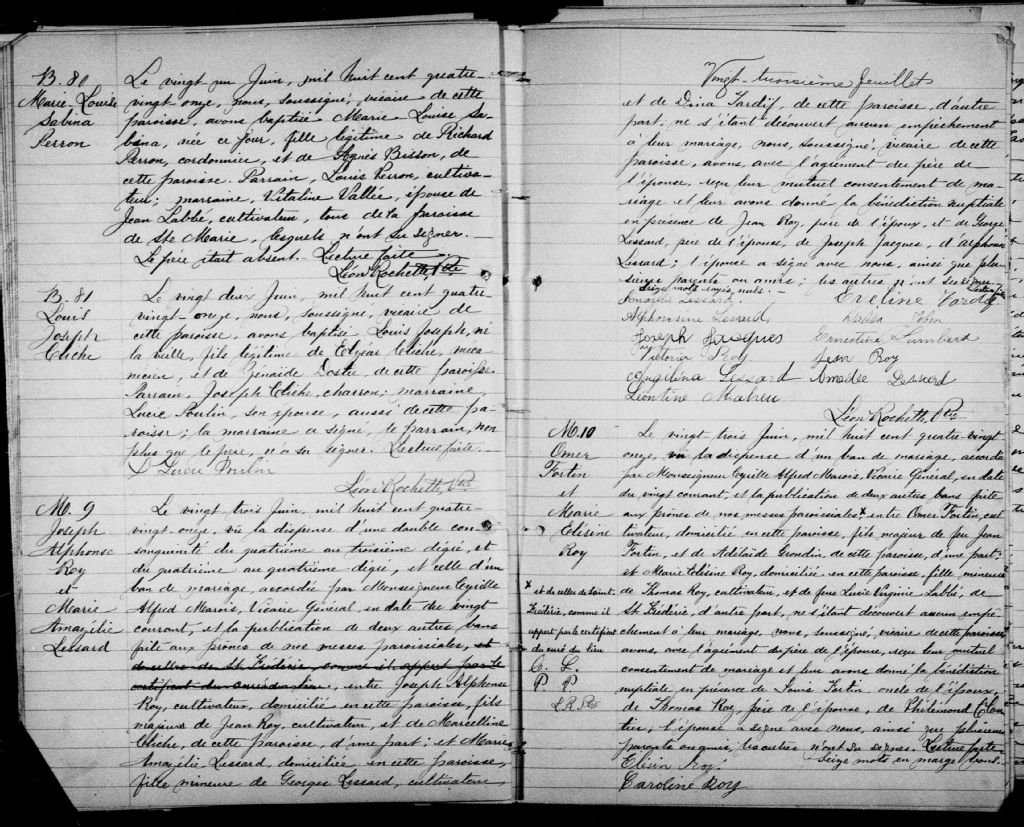 B. 80
Marie Louise
Sabina
Perron
Le vingt un Juin, mil huit cent quatre-
vingt onze, nous, soussigné, vicaire de cette
paroisse, avons baptisé Marie Louise Sa-
bina, née ce jour, fille légitime de Richard
Perron, cordonnier, et de Agnès Bisson, de
cette paroisse. Parrain, Louis Perron, cultiva-
teur; marraine, Vitaline Vallée, épouse de
Jean Labbé, cultivateur, tous de la paroisse
de Ste Marie, lesquels n'ont su signer.
Le père était absent. Lecture faite
Léon Rochette, Ptre
B. 81
Louis
Joseph
Cliche
Le vingt deux Juin, mil huit cent quatre-
vingt-onze, nous, soussigné, vicaire de
cette paroisse, avons baptisé Louis Joseph, né
la veille, fils légitime de Elzéar Cliche, méca-
nicien, et de Zénaïde Dostie, de cette paroisse
Parrain, Joseph Cliche, charron; marraine
Lucie Poulin, son épouse, aussi de cette pa-
roisse; la marraine a signé, le parrain, non
plus que le père, n'a su signer. Lecture faite.
D Lucie Poulin
Léon Rochette, Ptre
M. 9
Joseph
Alphonse
Roy
et
Marie
Amazélie
Lessard
Le vingt trois Juin, mil huit cent quatre-
vingt-onze, vu la dispense d'une double con-
sanguinité du quatrième au troisième dégré, et
du quatrième au quatrième dégré, et celle d'un
ban de mariage, accordée par Monseigneur Cyrille
Alfred Marois, Vicaire Général, en date du vingt
courant, et la publication de deux autres bans
faite aux prônes de nos messes paroissiales, et
de celles de St Frédéric, comme il appert par le
certificat du curé du lieu, entre Joseph Alphonse
Roy, cultivateur, domicilié en cette paroisse, fils
majeur de Jean Roy, cultivateur, et de Marcelline
Cliche, de cette paroisse, d'une part; et Marie
Amazélie Lessard, domiciliée en cette paroisse,
fille mineure de Georges Lessard, cultivateur
Vingt-troisième feuillet
et de Dina Tardif, de cette paroisse, d'autre
part; ne s'étant découvert aucun empêchement
à leur mariage, nous, soussigné, vicaire de cette
paroisse, avons, avec l'agrément du père de
l'épouse, reçu leur mutuel consentement de ma-
riage et leur avons donné la bénédiction nuptiale
en présence de Jean Roy, père de l'époux, et de George
Lessard, père de l'épouse, de Joseph Jacques, d'Alphonse
Lessard; l'épouse a signé avec nous, ainsi que plu-
sieurs parents ou amis; les autres n'ont su signer.
Lecture faite
Seize mots rayés nuls.
Amazélie Lessard, Eveline
Alphonsine Lessard
Joseph Jacques Ernestine Lambert
Vittoria Roy Jean Roy
Angelina Lessard Amedée Lessard
Léontine Maheu
Léon Rochette, Ptre
M. 10
Omer
Fortin
et
Marie
Elisine
Roy
Le vingt-trois Juin, mil huit cent quatre-vingt
onze, vu la dispense d'un ban de mariage, accordée
par Monseigneur Cyrille Alfred Marois, Vicaire Général, en date
du vingt courant, et la publication de deux autres bans faite
aux prônes de nos messes paroissiales x, entre Omer Fortin, cul-
tivateur, domicilié en cette paroisse, fils majeur de feu Jean
Fortin, et de Adélaïde Grondin, de cette paroisse, d'une part,
et Marie Elisine Roy, domiciliée en cette paroisse, fille mineure
de Thomas Roy, cultivateur, et de feue Lucie Virginie Labbé, de
St Frédéric, d'autre part, ne s'étant découvert aucun empê-
chement à leur mariage, nous, soussigné, vicaire de cette paroisse
avons, avec l'agrément du père de l'épouse, reçu leur mutuel
consentement de mariage et leur avons donné la bénédiction
nuptiale en présence de Louis Fortin, oncle de l'époux,
de Thomas Roy, père de l'épouse, de Philémond Clou-
tier; l'épouse a signé avec nous, ainsi que plusieurs
parents ou amis; les autres n'ont su signer. Lecture faite
Seize mots en marge bons.
x et de celles de Saint
Frédéric, comme il
appert par le certificat
du curé du lieu
C. L.
P P
L. R. Ptre
Elisin Roy
Caroline Roy